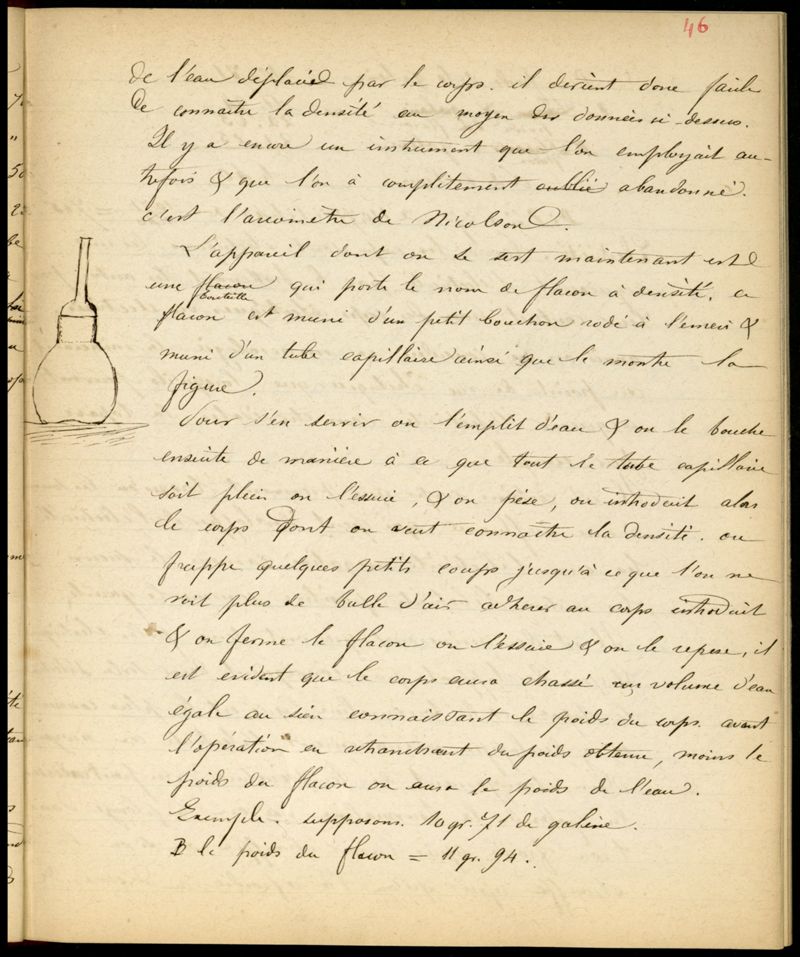 46
de l'eau déplacée par le corps. il devient donc facile
De connaître la densité au moyen des données ci-dessus.
Il y a encore un instrument que l'on employait au-
trefois & que l'on à complètement oublié abandonné.
c'est l'aréomètre de Nicolson.
L'appareil dont on se sert maintenant est
une flacon qui porte le nom de flacon à densité. ce
bouteille
flacon est muni d'un petit bouchon rodé à l'émeri &
muni d'un tube capillaire ainsi que le montre la
figure.
Pour s'en servir on l'emplit d'eau & on le bouche
ensuite de manière à ce que tout le tube capillaire
soit plein on l'essuie, & on pèse, on introduit alors
le corps dont on veut connaître la densité. on
frappe quelques petits coups jusqu'à ce que l'on ne
voit plus de bulle d'air adherer au corps introduit
& on ferme le flacon on l'essuie & on le repese, il
est evident que le corps aura chassé un volume d'eau
égale au sien connaissant le poids du corps avant
l'opération en retranchant du poids obtenu, moins le
poids du flacon on aura le poids de l'eau.
Exemple. supposons. 10 gr. 71 de galène.
B le poids du flacon = 11 gr. 94.